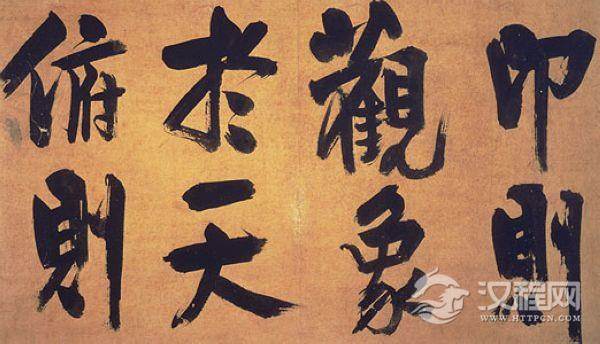 卬則
觀象
於天
俯則
汉程网
WWW.HTTPCN.COM